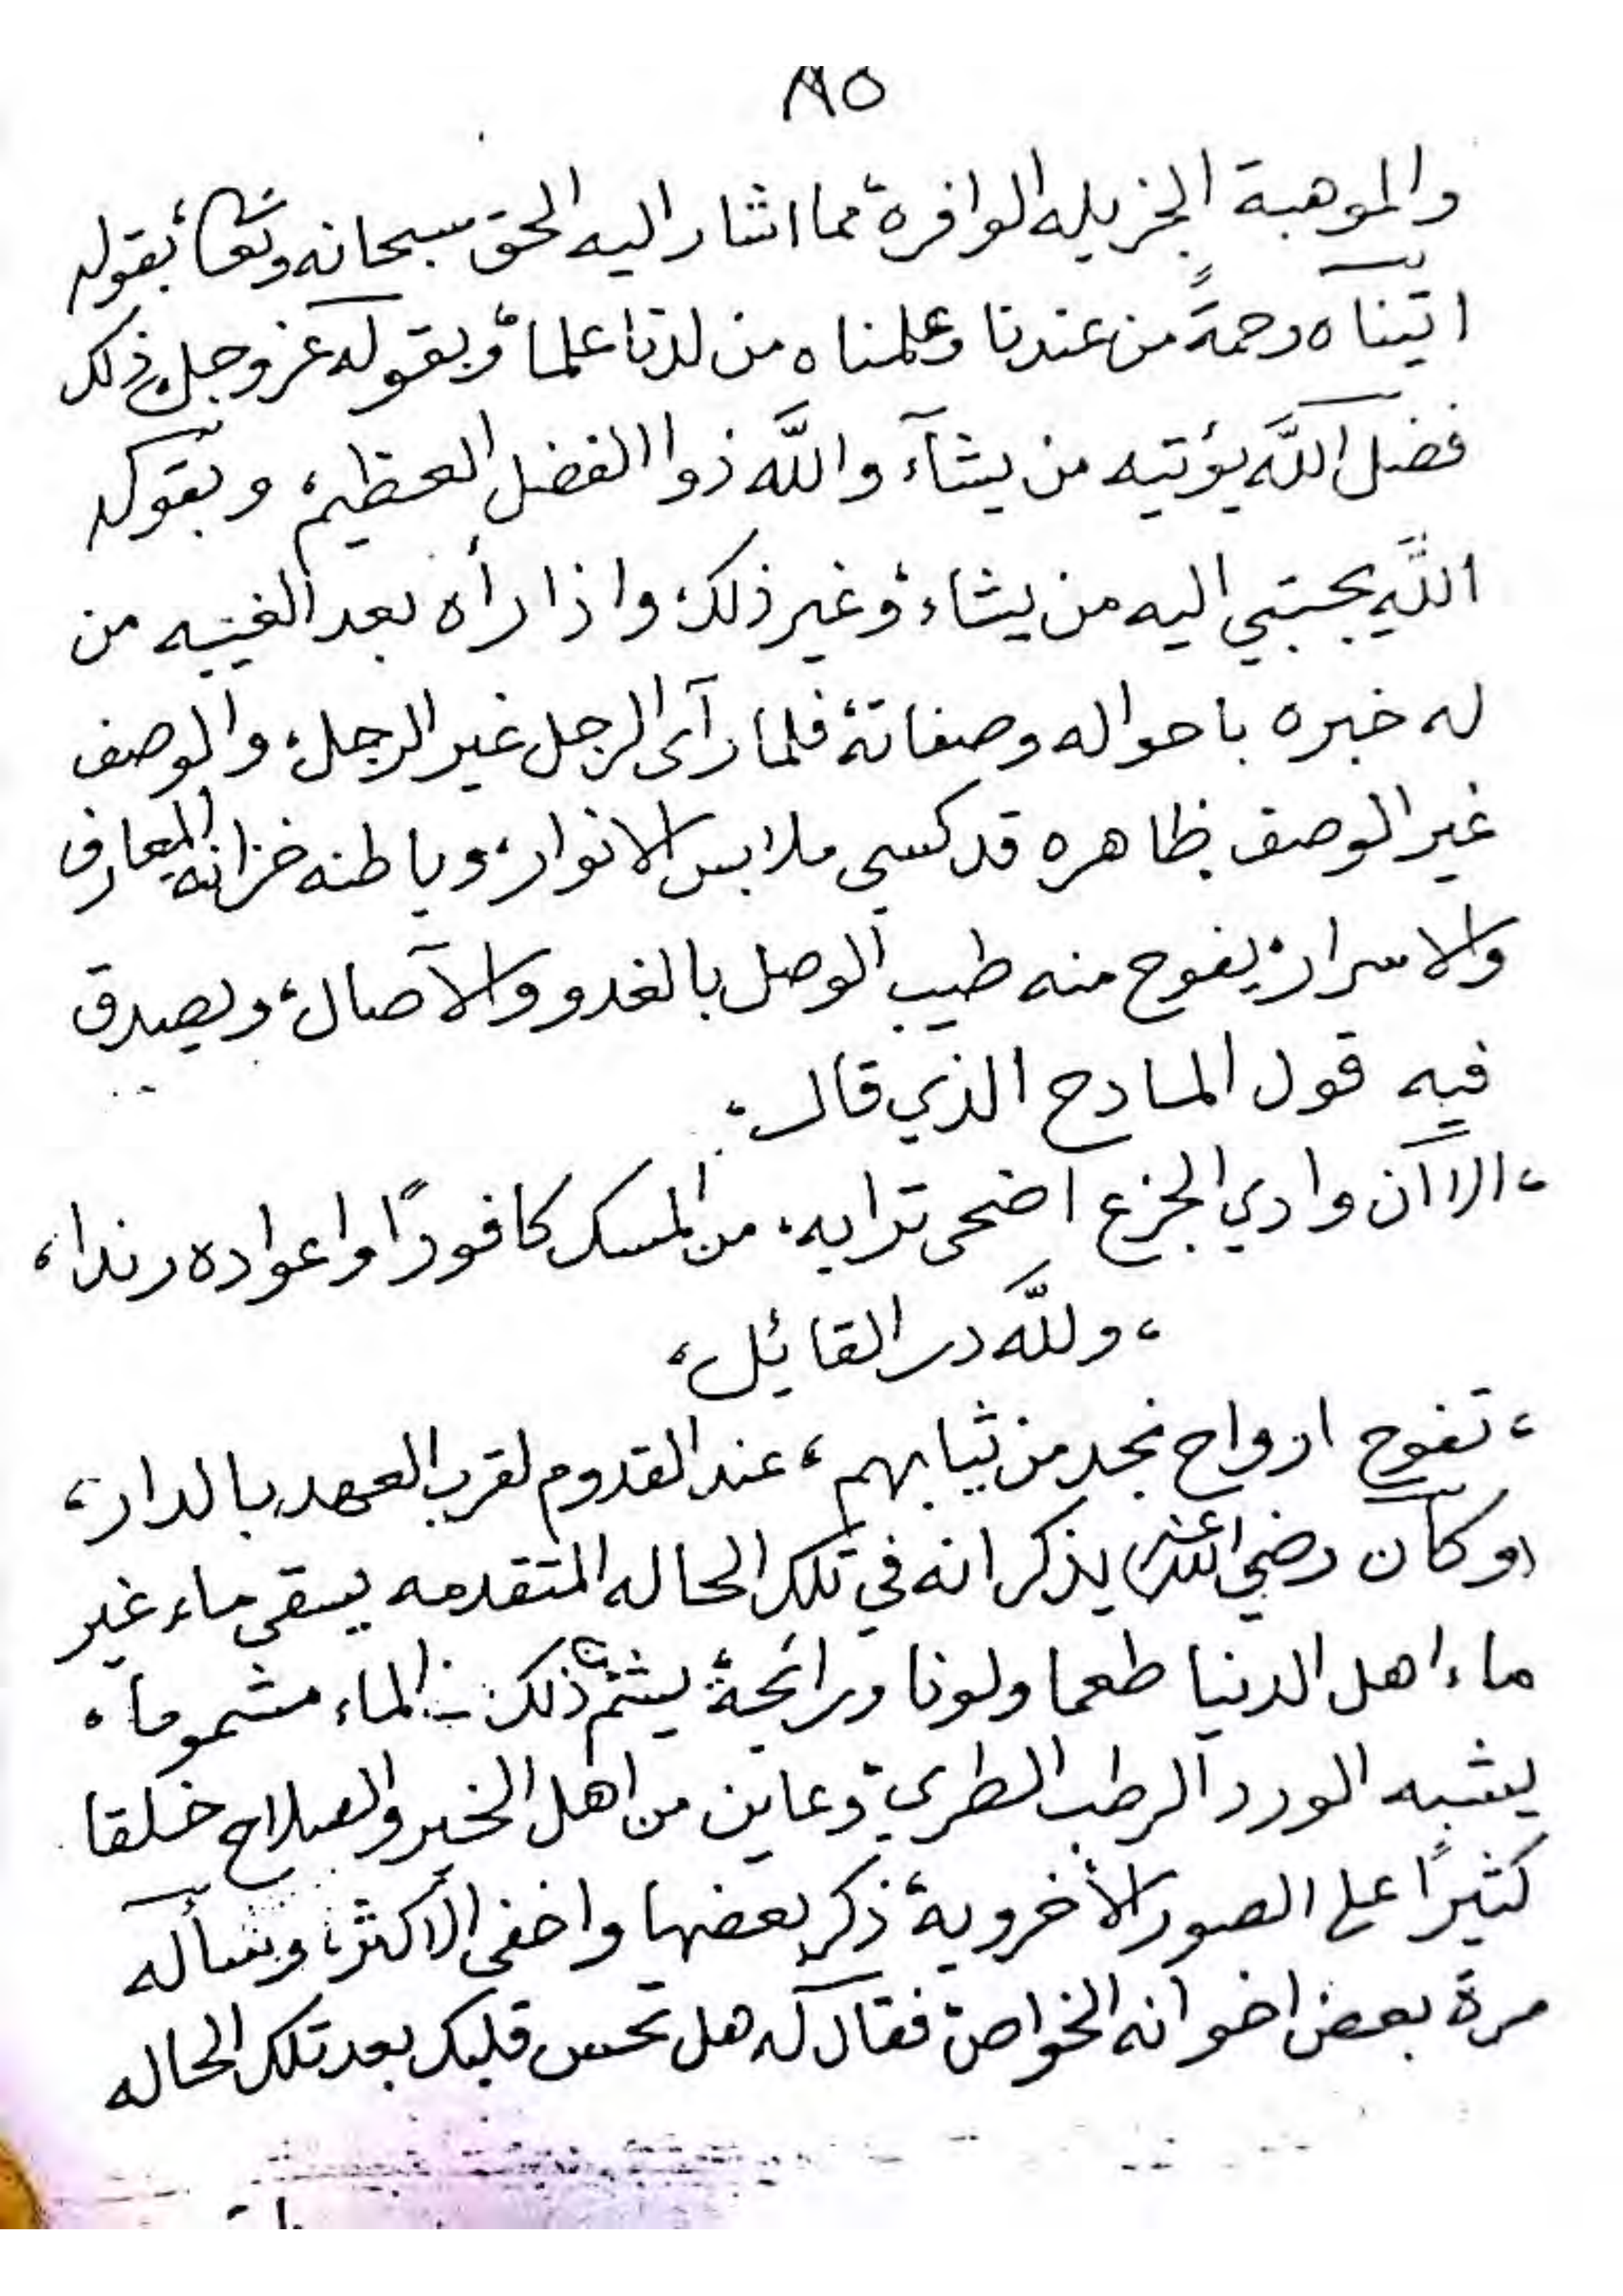 ٨٥
والموهبة الجزيله الوافرة، مما اشار اليه الحق سبحانه وتعا، بقوله
اتيناه رحمةً من عندنا وعلمناه من لدنا علما، وبقوله عز وجل، ذلك
فضل اللَّه يؤتيه من يشآء واللَّه ذوا الفضل العظيم، وبقوله
اللَّه يجتبي اليه من يشاء، وغير ذلك، واذا رأه بعد الغيبه من
له خبره باحواله وصفاته، فلما رآى الرجل غير الرجل، والوصف
غير الوصف ظاهره قد كسي ملابس الانوار، وباطنه خزانة المعارف
والاسرار، يفوح منه طيب الوصل بالغدو والآصال، ويصدق
فيه قول المادح الذي قال،
، الا آن وادي الجزع اضحى ترابه، من المسك كافورًا واعواده رندا،
، وللَّه در القائيل،
، تفوح ارواح نجد من ثيابهم، عند القدوم لقرب العهد بالدار،
(وكان رضي الله عنه) يذكر انه في تلك الحاله المتقدمه يسقى ماء غير
ماء اهل الدنيا طعما ولونا ورائحة، يشم ذلك الماء مشموما،
يشبه الورد الرطب الطري، وعاين من اهل الخير والصلاح خلقا
كثيرًا على الصور الأخروية، ذكر بعضها واخفى الأكثر، وسأله
مرة بعض اخوانه الخواص، فقال له هل تحس قلبك بعد تلك الحاله